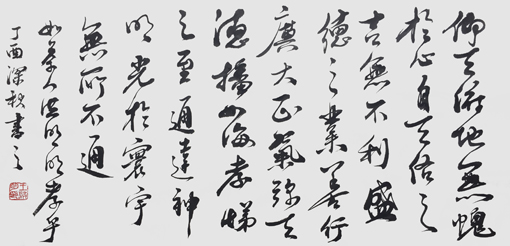 仰天俯地無愧
於心自天佑之
吉無不利盛
德之業善行
廣大正氣弥天
德播四海孝悌
之至通達神
明光於寰宇
無所不通
明明孝乎
丁酉深秋書之